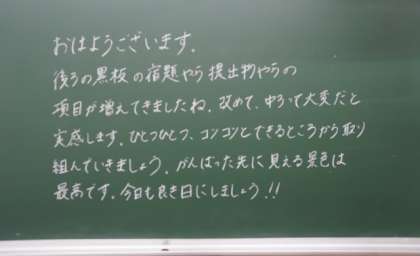 おはようございます。
後ろの黒板の宿題やら提出物やらの
項目が増えてきましたね。改めて、中3って大変だと
実感します。ひとつひとつ、コツコツとできるところから取り
組んでいきましょう。がんばった先に見える景色は
最高です。今日も良き日にしましょう!!